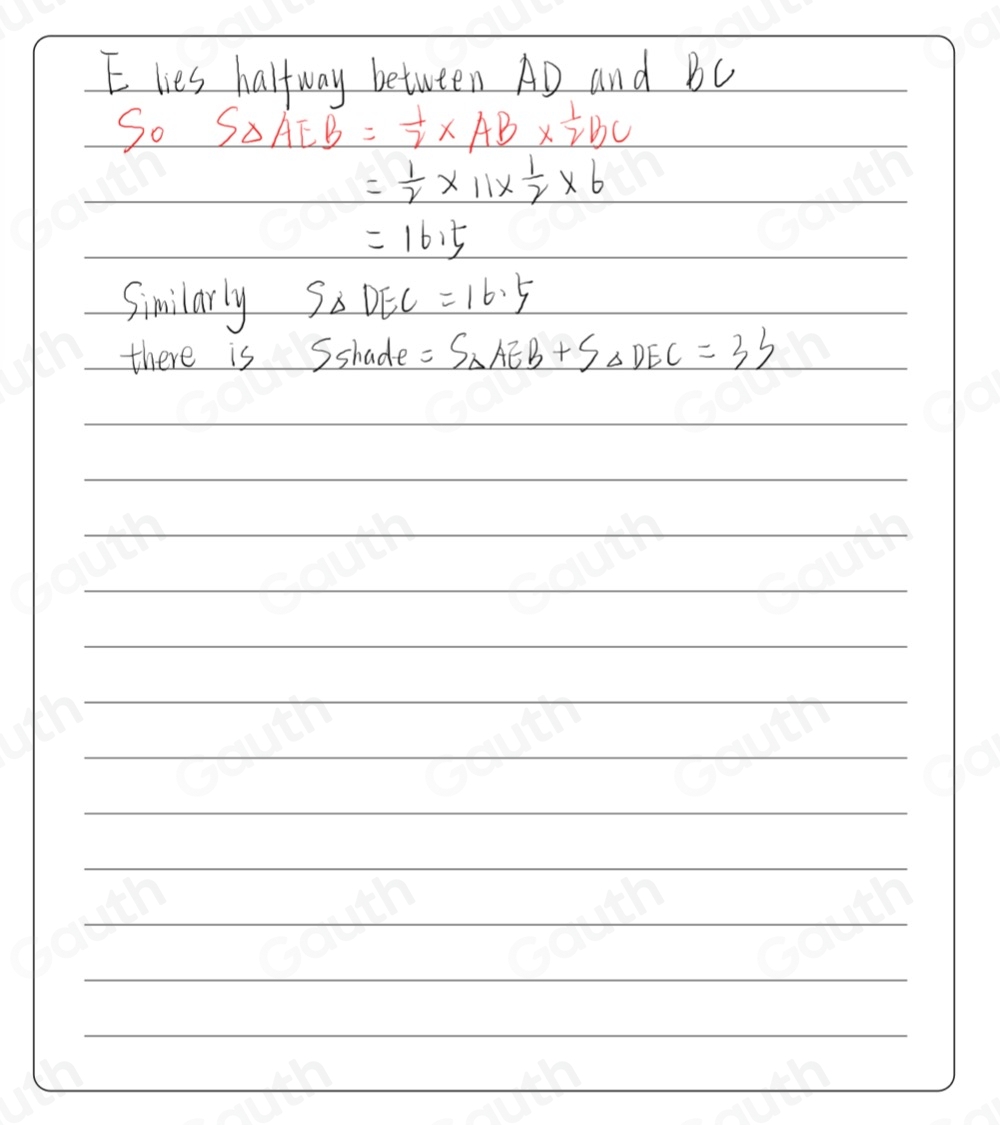 E lies halfway between AD and BC
So S△AEB = 1/2 × AB × 1/2 BC
= 1/2 × 11 × 1/2 × 6
= 16.5
Similarly S△DEC = 16.5
there is Sshade = S△AEB + S△DEC = 33
Gauth